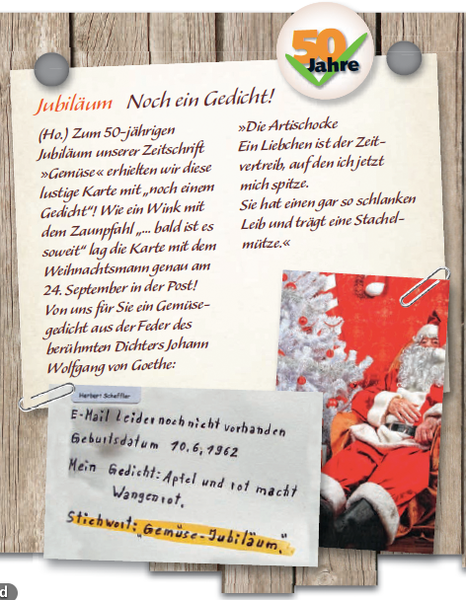 50
Jahre
Jubiläum Noch ein Gedicht!
(Ho.) Zum 50-jährigen
Jubiläum unserer Zeitschrift
»Gemüse« erhielten wir diese
lustige Karte mit „noch einem
Gedicht“! Wie ein Wink mit
dem Zaunpfahl „... bald ist es
soweit“ lag die Karte mit dem
Weihnachtsmann genau am
24. September in der Post!
Von uns für Sie ein Gemüse-
gedicht aus der Feder des
berühmten Dichters Johann
Wolfgang von Goethe:
»Die Artischocke
Ein Liebchen ist der Zeit-
vertreib, auf den ich jetzt
mich spitze.
Sie hat einen gar so schlanken
Leib und trägt eine Stachel-
mütze.«
Herbert Scheffler
E-Mail Leider noch nicht vorhanden
Geburtsdatum 10.6,1962
Mein Gedicht: Apfel und rot macht
Wangenrot.
Stichwort: „Gemüse-Jubiläum."
d